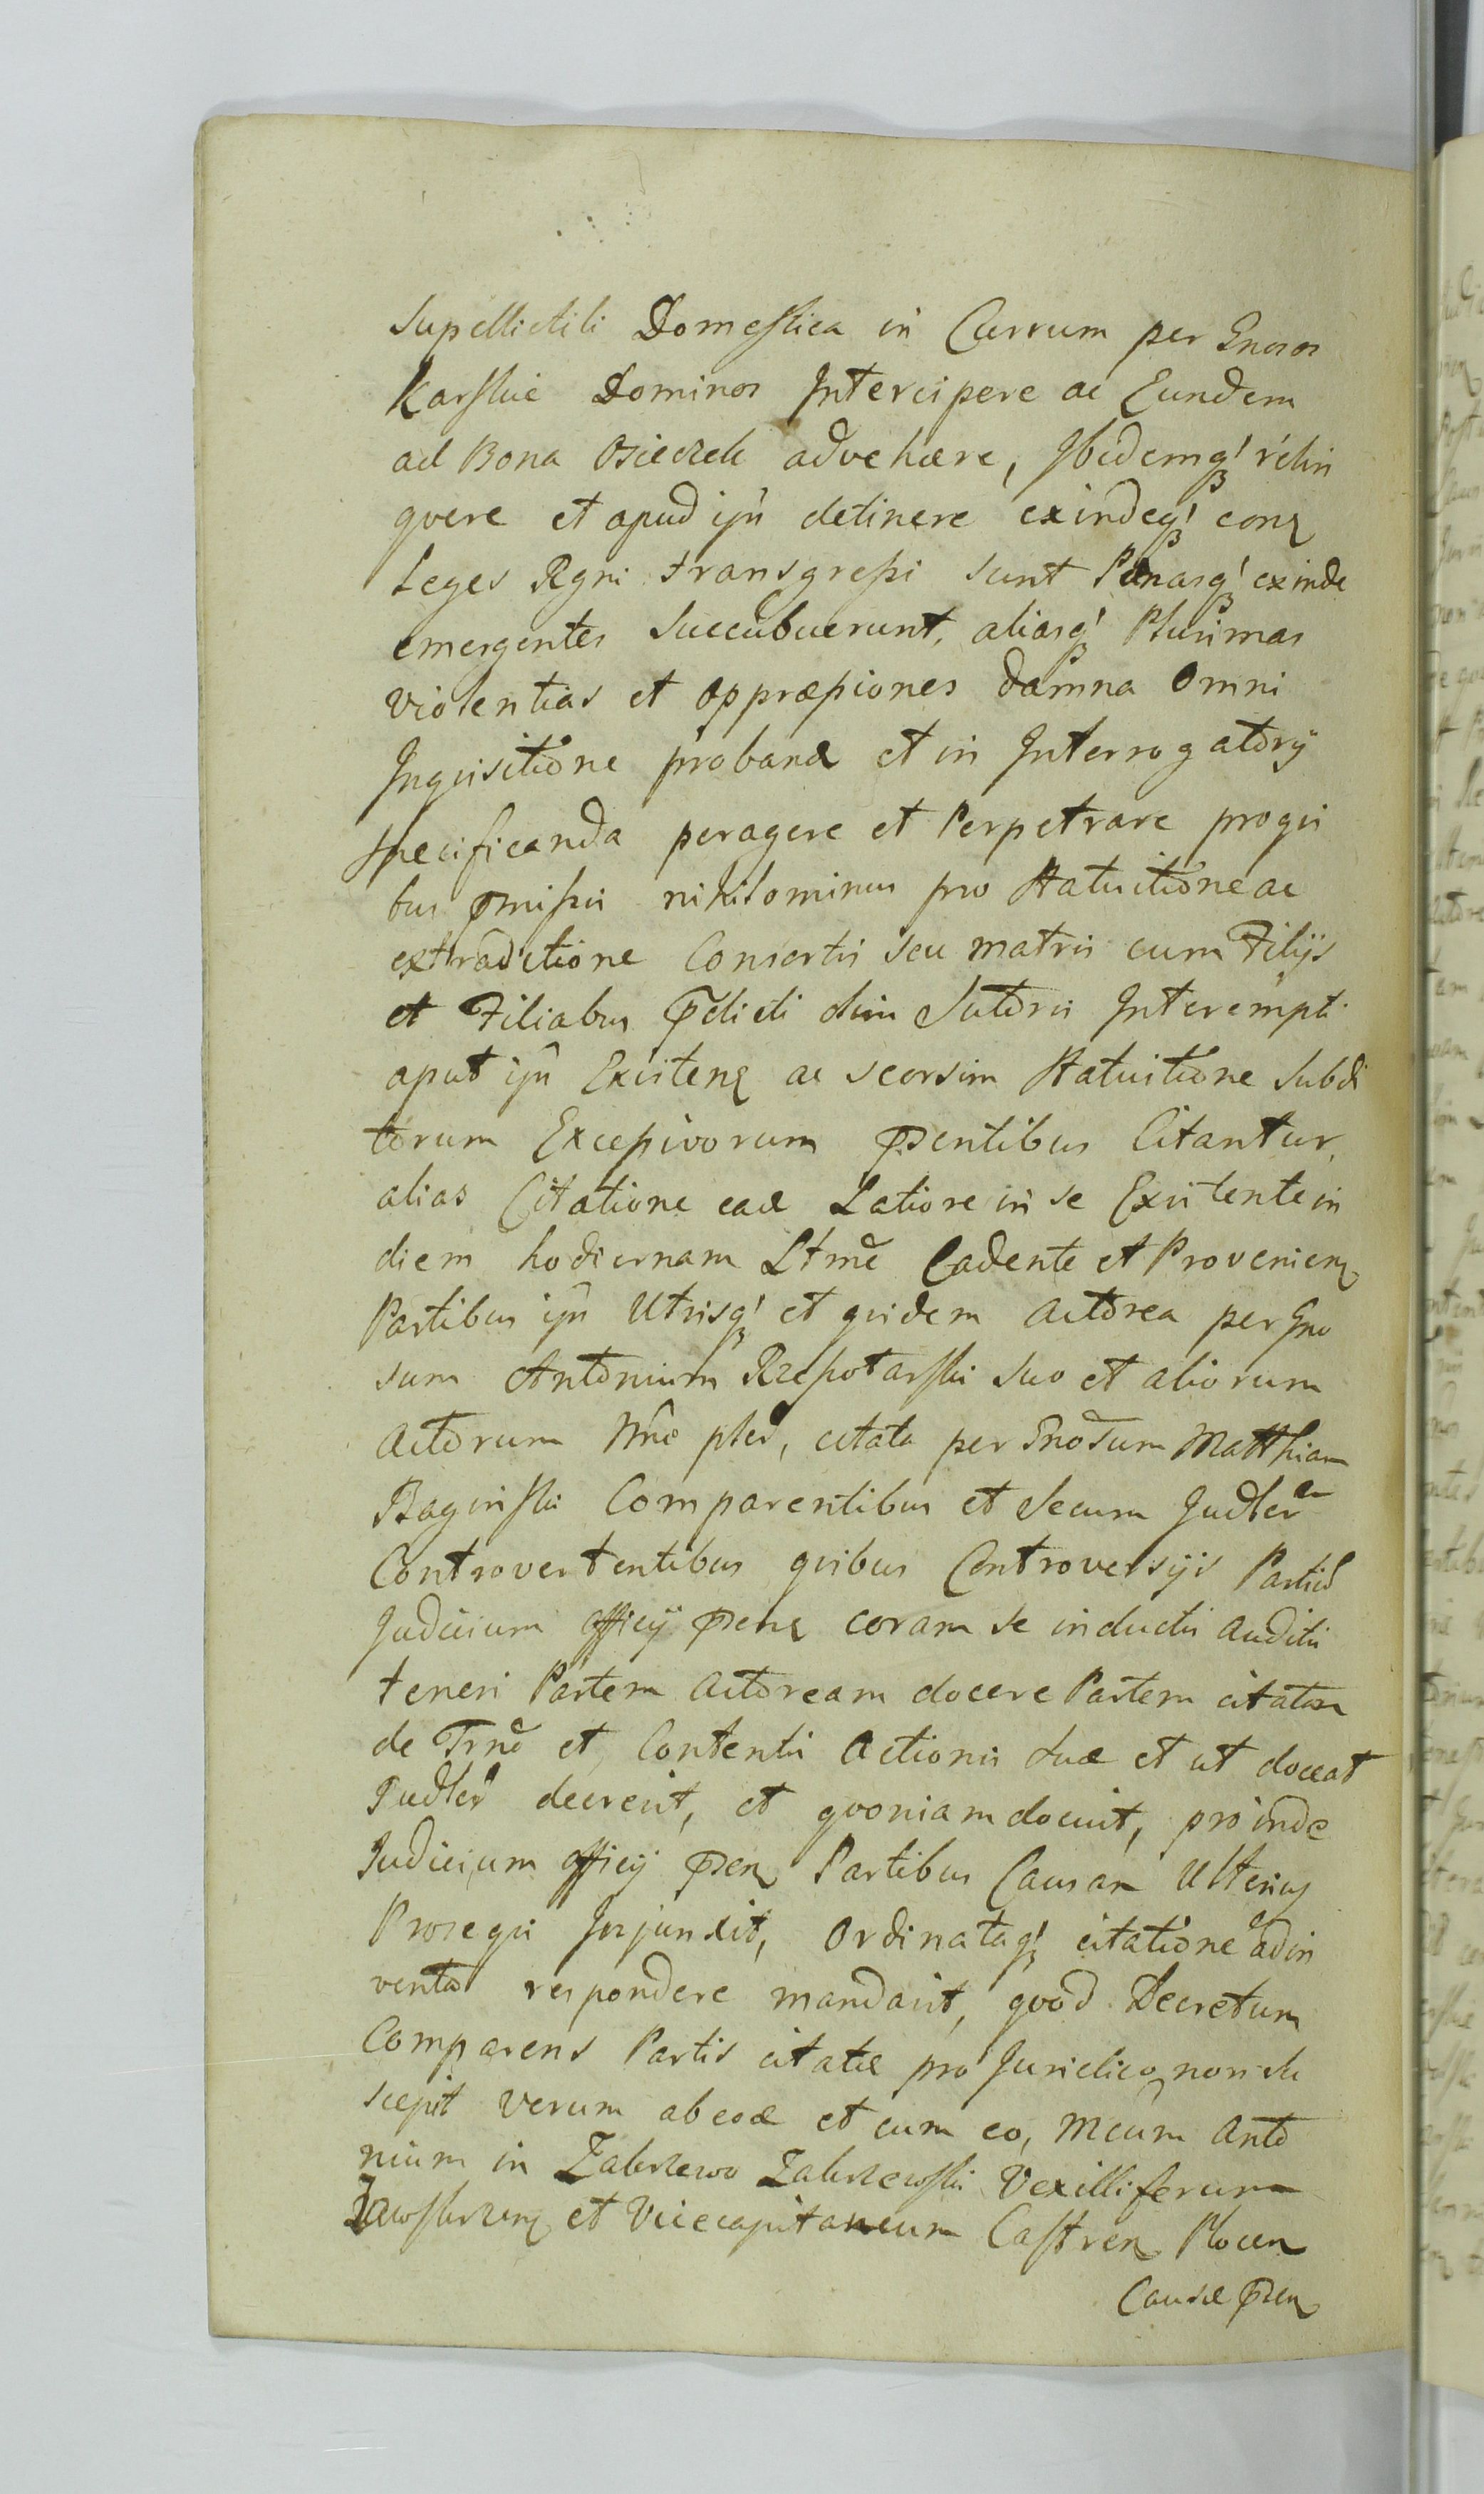 Supellictili Domestica in Currum per Gnosos
Karskie Dominos Intercipere ac Eundem
ad Bona Osieczek advehære, Ibidemq́ʒ relin
qvere et apud ipn̄ detinere exindeq́ʒ conʒ
Leges Regni transgressi sunt Pænasq́ʒ exinde
emergentes Succubuerunt, aliasq́ʒ Plurimas
violentias et oppræssiones damna Omni
Inquisitione probanda et in Interrogatorÿ
specificanda peragere et Perpetrare pro qui
bus p̄missis nihilominus pro Statuitione ac
extraditione Consortis seu matris cum Filÿs
et Filiabus p̄dicti olim Sutoris Interempti
aput ipn̄ Existenʒ ac seorsim Statuitione Subdi
torum Excessivorum p̄sentibus Citantur,
alias Citatione eadē Latiore in se Existente in
diem hodiernam Ltmē Cadente et Provenienʒ
Partibus ipn̄ Utrisq́ʒ et quidem actorea per Gno
sum Antonium Rzeszotarski suo et aliorum
actorum Nn̄e plēd, citata per Gnosum Matthiam
Baginski Comparentibus et Secum Judler
Controvertentibus quibus Controversÿs Partiū
Judicium officÿ p̄senʒ coram se inductis auditis
teneri Partem actoream docere Partem citatam
de Trnō et Contentis Actionis suæ et ut doceat
Judler decrevit, et qvoniam docuit, proinde
Judicium officÿ p̄senʒ Partibus Causam Ulterius
Prosequi Injunxit, Ordinataq́ʒ citatione ad in
venta respondere mandavit, qvod Decretum
Comparens Partis citatæ pro Juridico non su
scepit verum ab eodē et cum eo, Mcum Anto
nium in Zakrzewo Zakrzewski Vexilliferum
Zawskrzenʒ et Vicecapitaneum Castrenʒ Plocen
Causæ p̄senʒ